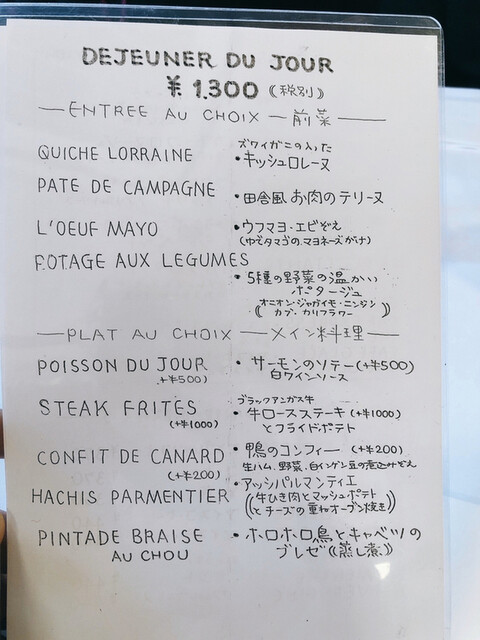 DEJEUNER DU JOUR
¥1.300 (税別)
ENTREE AU CHOIX — 前菜
QUICHE LORRAINE ズワイガニの入った
・キッシュロレーヌ
PATE DE CAMPAGNE ・田舎風お肉のテリーヌ
L'OEUF MAYO ・ウフマヨ・エビぞえ
(ゆでタマゴのマヨネーズがけ)
POTAGE AUX LEGUMES
・5種の野菜の温かい
ポタージュ
(オニオン・ジャガイモ・ニンジン
カブ・カリフラワー)
PLAT AU CHOIX — メイン料理
POISSON DU JOUR ・サーモンのソテー(+¥500)
(+¥500) 白ワインソース
STEAK FRITES ブラックアンガス牛
・牛ロースステーキ (+¥1000)
(+¥1000) とフライドポテト
CONFIT DE CANARD ・鴨のコンフィー (+¥200)
(+¥200) 生ハム、野菜、白インゲン豆の煮込みぞえ
・アッシパルマンティエ
HACHIS PARMENTIER (牛ひき肉とマッシュポテト
とチーズの重ねオーブン焼き)
PINTADE BRAISE ・ホロホロ鳥とキャベツの
AU CHOU ブレゼ((蒸し煮))